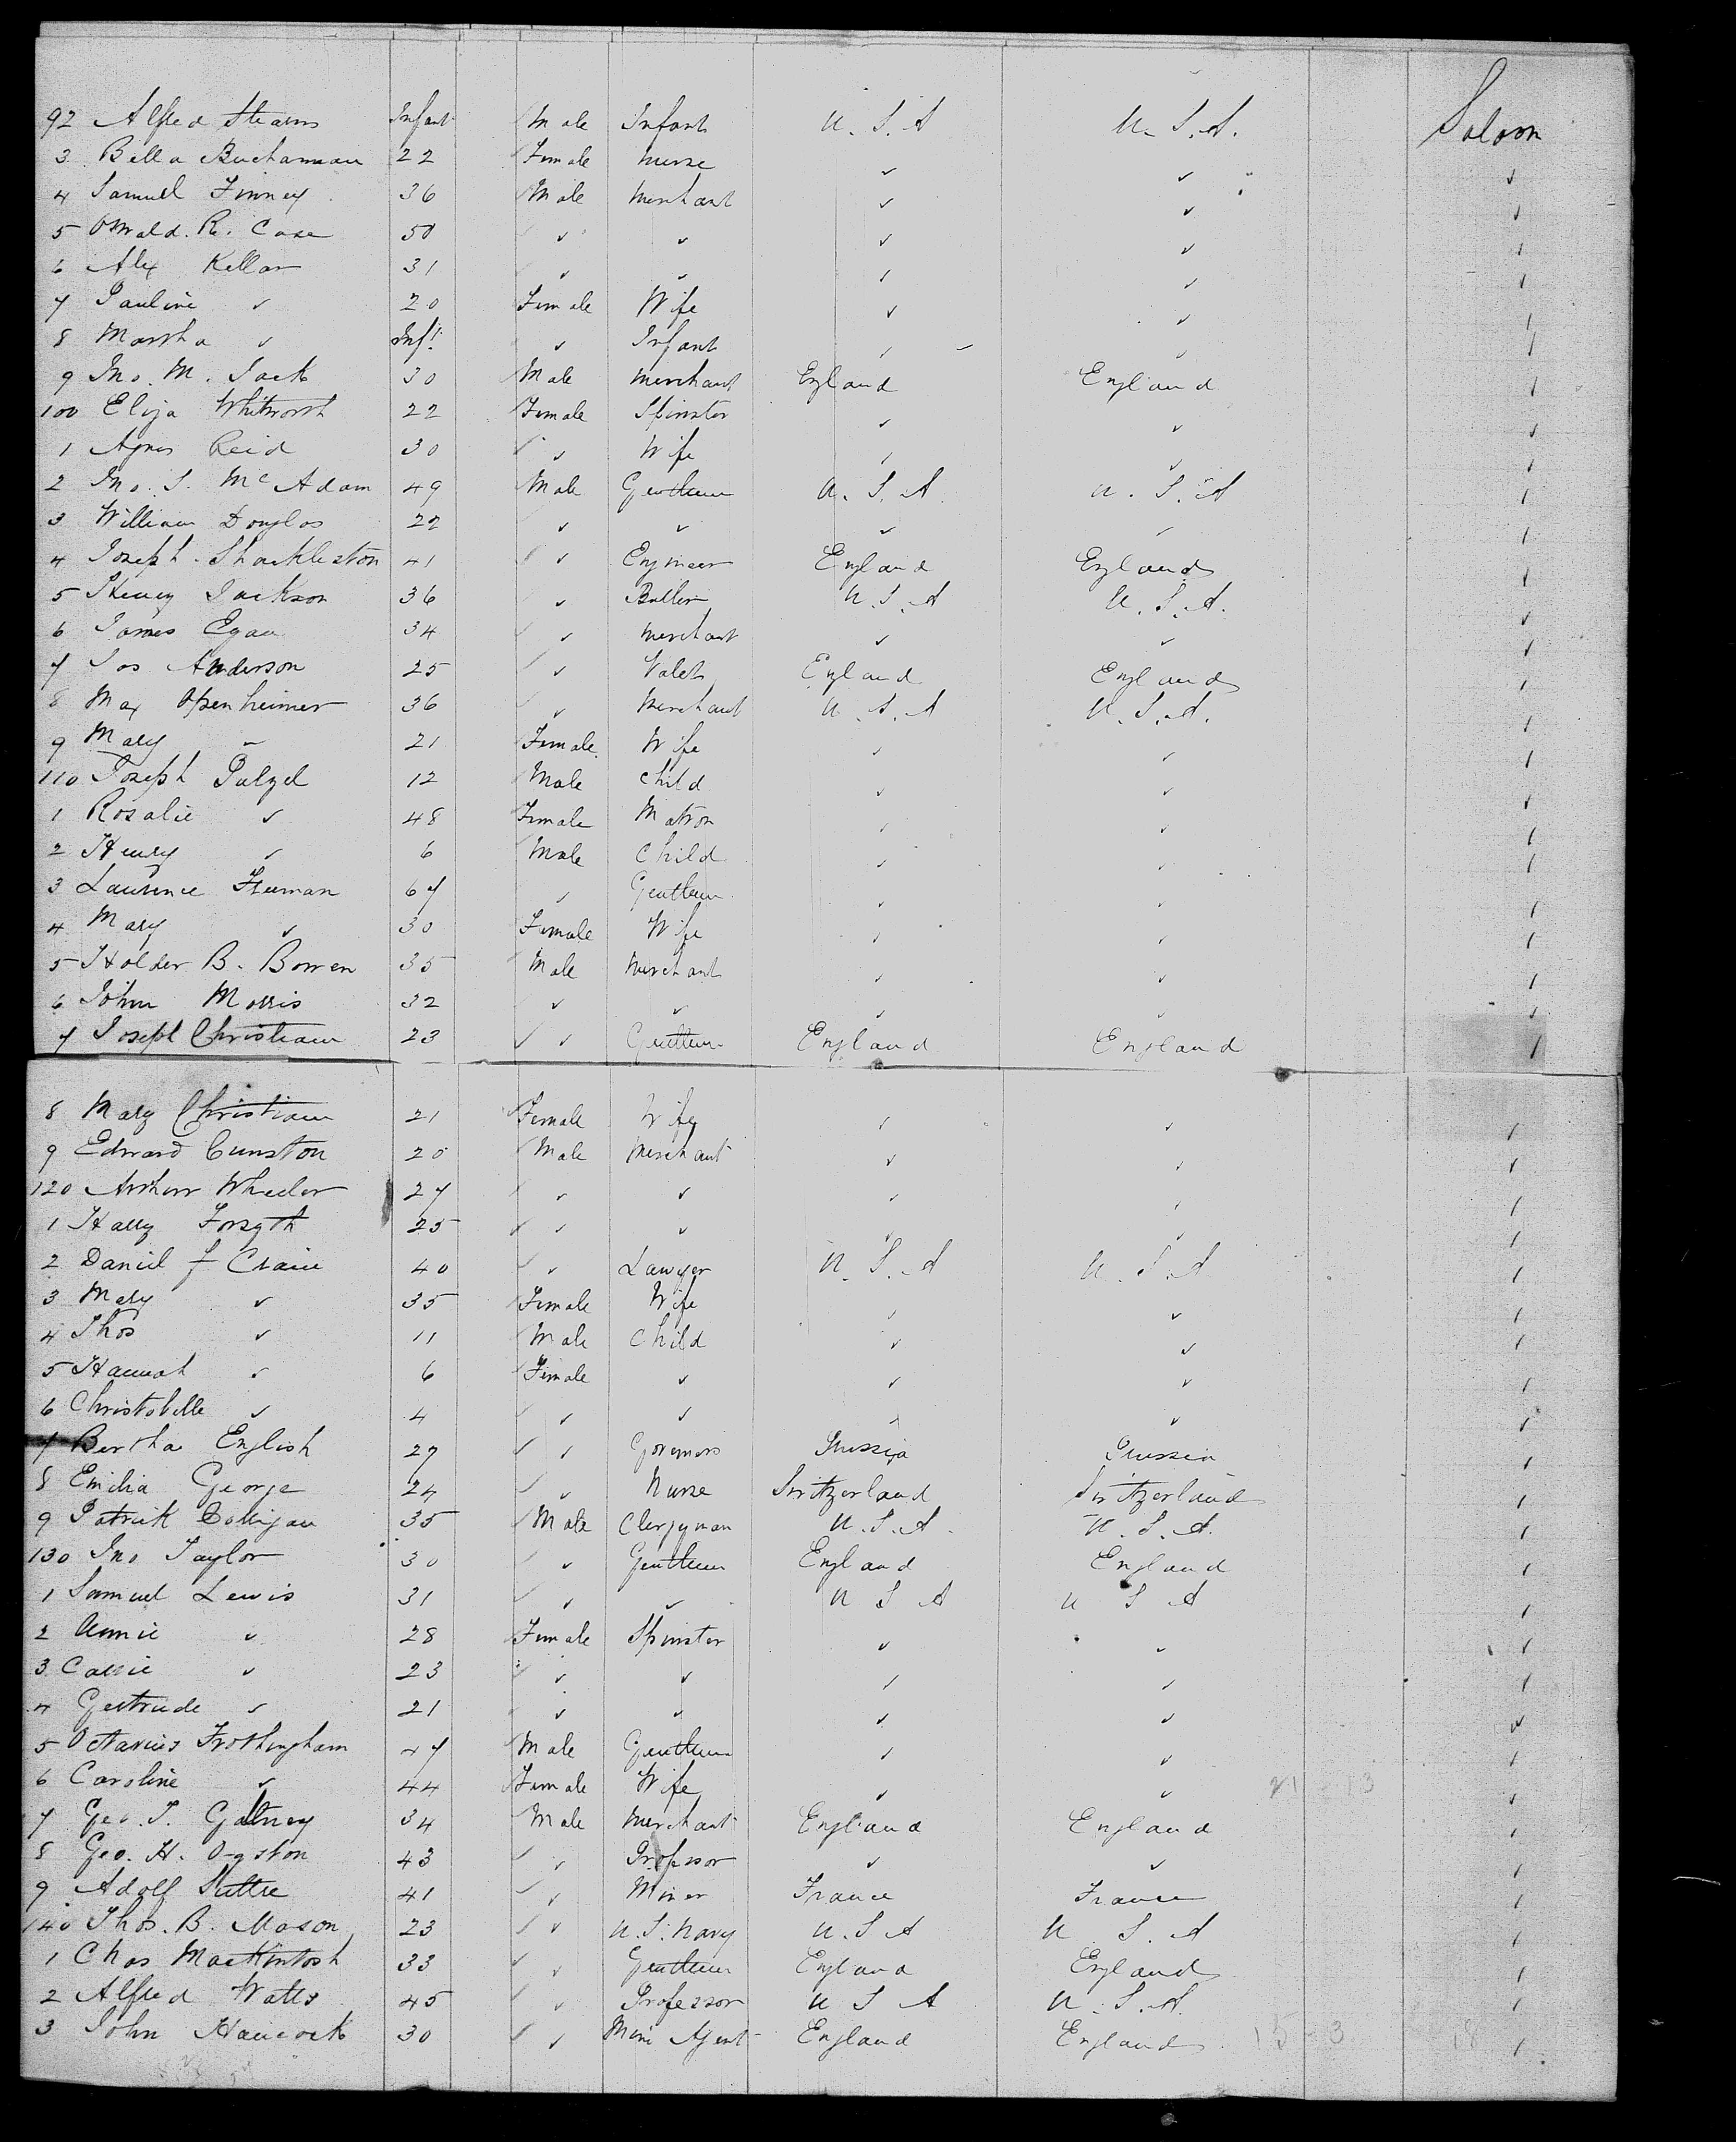 92 Alfred Stearns Infant Male Infant U. S. A U. S. A. Saloon
3 Bella Buchannan 22 Female Nurse ✓ ✓ ✓
4 Samuel Finney 36 Male Merchant ✓ ✓ ✓
5 Oswald. R. Case 50 ✓ ✓ ✓ ✓ ✓
6 Alex Kellar 31 ✓ ✓ ✓ ✓ ✓
7 Pauline ✓ 20 Female Wife ✓ ✓ ✓
8 Martha ✓ Inft. ✓ Infant ✓ ✓ ✓
9 Jno. M. Jack 30 Male Merchant England England ✓
100 Eliza Whitworth 22 Female Spinster ✓ ✓ ✓
1 Agnes Reid 30 ✓ Wife ✓ ✓ ✓
2 Jno. S. McAdam 49 Male Gentlem U. S. A U. S. A ✓
3 William Douglas 22 ✓ ✓ ✓ ✓ ✓
4 Joseph Shackleston 41 ✓ Engineer England England ✓
5 Henry Jackson 36 ✓ Butler U. S. A U. S. A. ✓
6 James Egan 34 ✓ Merchant ✓ ✓ ✓
7 Jas Anderson 25 ✓ Valet England England ✓
8 Max Openheimer 36 ✓ Merchant U. S. A U. S. A. ✓
9 Mary ✓ 21 Female Wife ✓ ✓ ✓
110 Joseph Pulzel 12 Male Child ✓ ✓ ✓
1 Rosalie ✓ 48 Female Matron ✓ ✓ ✓
2 Henry ✓ 6 Male Child ✓ ✓ ✓
3 Laurence Freeman 67 ✓ Gentlem ✓ ✓ ✓
4 Mary ✓ 30 Female Wife ✓ ✓ ✓
5 Holder B. Bowen 35 Male Merchant ✓ ✓ ✓
6 John Morris 32 ✓ ✓ ✓ ✓ ✓
7 Joseph Christian 23 ✓ Gentlem England England ✓
8 Mary Christian 21 Female Wife ✓ ✓ ✓
9 Edward Cunston 20 Male Merchant ✓ ✓ ✓
120 Arthur Wheeler 27 ✓ ✓ ✓ ✓ ✓
1 Harry Forsyth 25 ✓ ✓ ✓ ✓ ✓
2 Daniel f Craire 40 ✓ Lawyer U. S. A U. S. A ✓
3 Mary ✓ 35 Female Wife ✓ ✓ ✓
4 Thos ✓ 11 Male Child ✓ ✓ ✓
5 Hannah ✓ 6 Female ✓ ✓ ✓ ✓
6 Christobelle ✓ 4 ✓ ✓ ✓ ✓ ✓
7 Bertha English 27 ✓ Governess Prussia Prussia ✓
8 Emilia George 24 ✓ Nurse Switzerland Switzerland ✓
9 Patrick 35 Male Clergyman U. S. A. U. S. A. ✓
130 Jno Taylor 30 ✓ Gentlem England England ✓
1 Samuel Lewis 31 ✓ ✓ U S A U S A ✓
2 Annie ✓ 28 Female Spinster ✓ ✓ ✓
3 Carrie ✓ 23 ✓ ✓ ✓ ✓ ✓
4 Gertrude ✓ 21 ✓ ✓ ✓ ✓ ✓
5 Octavius Frothingham 47 Male Gentlem ✓ ✓ ✓
6 Caroline ✓ 44 Female Wife ✓ ✓ 21 - 13 ✓
7 Geo. T. 34 Male Merchant England England ✓
8 Geo. H. Ogston 43 ✓ Professor ✓ ✓ ✓
9 Adolf Suttre 41 ✓ Miner France France ✓
140 Thos. B. Mason 23 ✓ U. S. Navy U. S A U. S. A ✓
1 Chas MacKintosh 33 ✓ Gentlem England England ✓
2 Alfred Watts 45 ✓ Professor U S A U. S. A. ✓
3 John Hancock 30 ✓ Mini Agent England England 15 - 3 18 ✓